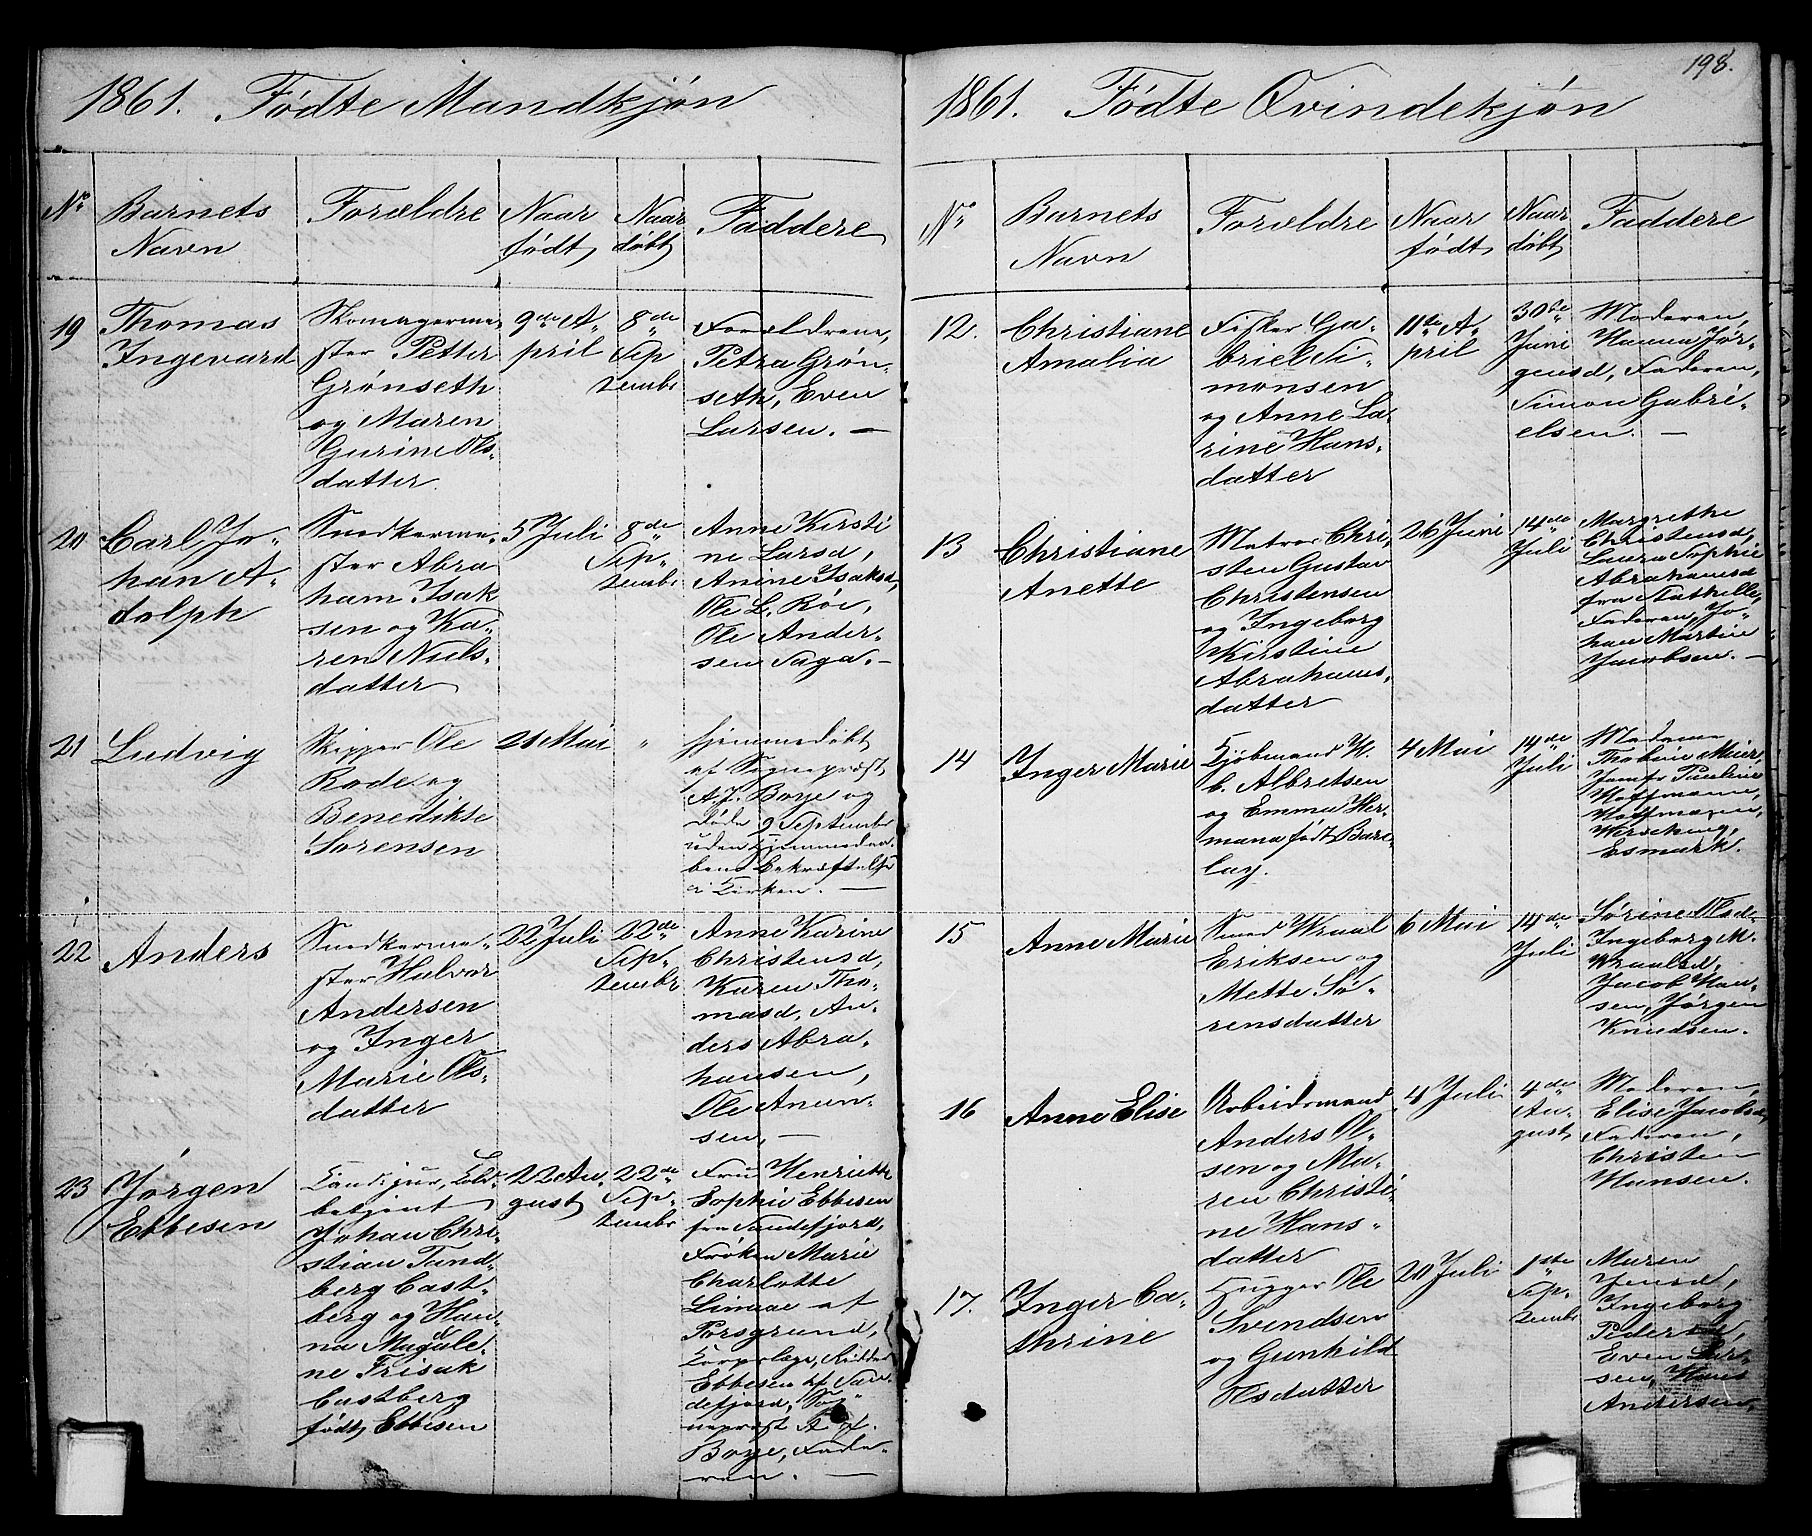 1861. Fødte Mandkjøn
No
Barnets
Navn
Forældre
Naar
født
Naar
døbt
Faddere
19
Thomas
Ingevard
Skomagerme-
ster Petter
Grønseth
og Maren
Gurine Ols-
datter.
9de A-
pril
8de
Sep-
tembr
Forældrene,
Petra Grøn-
seth, Even
Larsen. —
20
Carl Jo-
han A-
dolph
Snedkerme-
ster Abra
ham Isak
sen og Ka-
ren Niels-
datter
5 Juli
8de
Sep-
tembr
Anne Kirsti
ne Larsd,
Anine Isaksd,
Ole L. Röe,
Ole Ander-
sen Saga. —
21
Ludvig
Skipper Ole
Rode og
Benedikte
Sørensen
21 Mai
"
hjemmedøbt
af Sognepræst
A. J. Borje og
døde 9 September
uden Hjemmedaa-
bens Bekræftelse
i Kirken. —
22
Anders
Snedkerme-
ster Halvor
Andersen
og Inger
Marie Ols-
datter
22 Juli
22de
Sep-
tembr
Anne Karine
Christensd,
Karen Tho-
masd, An-
ders Abra-
hansen,
Ole Anun-
sen. —
23
Jørgen
Ebbesen
Johan Chri-
stian Tand-
berg Cast-
berg og Han-
na Magdale-
ne Frisak
Castberg
født Ebbesen
22 Au-
gust
22de
Sep-
tembr
Fru Henriette
Sophie Ebbesen
fra Sandefjord,
Frøken Marie
Charlotte
Linaae af
Porsgrund,
Korpslæge, Ridder
Ebbesen af San-
defjord, Sog-
nepræst A. J.
Borje, Fade-
ren. —
198.
1861. Fødte Qvindekjøn
No
Barnets
Navn
Forældre
Naar
født
Naar
døbt
Faddere
12.
Christiane
Amalia
Fisker Ga-
briel Si-
monsen
og Anne La-
rine Hans-
datter
11te A-
pril
30te
Juni
Moderen,
Hanna Jør-
gensd, Faderen,
Simon Gabri-
elsen. —
13
Christiane
Anette
Matros Chri-
sten Gustav
Christensen
og Ingeborg
Kirstine
Abrahams-
datter
26 Juni
14de
Juli
Margrethe
Christensd,
Laura Sophie
Abrahamsd
fra Stathelle,
Faderen, Jo-
han Martin
Jacobsen. —
14
Inger Marie
Kjøbmand H.
C. Albretsen
og Emma Her-
mana født Barc-
lay.
4 Mai
14de
Juli
Madame
Thobine Meier,
Jomfr Pauline
Hoffmann,
Hoffmann,
Esmark.
15
Anne Marie
Smed Wraal
Eriksen og
Mette Sö-
rensdatter
6 Mai
14de
Juli
Sørine Olsd-
Ingeborg M.
Wraalsd,
Jacob Han-
sen, Jørgen
Knudsen.
16
Anne Elise
Arbeidsmand
Anders Ol-
sen og Ma-
ren Christi-
ne Hans-
datter
4 Juli
4de
Au-
gust
Moderen,
Elise Jacobsd,
Faderen,
Christen
Hansen.
17.
Inger Ca-
thrine
Hugger Ole
Svendsen
og Gunhild
Olsdatter
20 Juli
1ste
Sep-
tembr
Maren
Jensd,
Ingeborg
Pedersd,
Even Lar-
sen, Hans
Andersen,